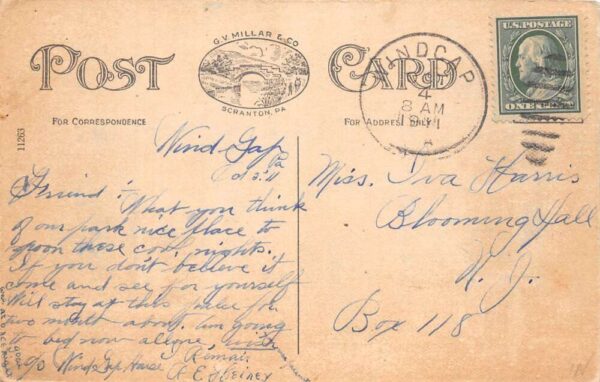 G. V. MILLAR & CO
SCRANTON, PA.
POST CARD
FOR CORRESPONDENCE
FOR ADDRESS ONLY
11263
WINDGAP
4
8 AM
1911
PA
U.S. POSTAGE
ONE CENT
Wind Gap
Pa
Oct 3. 11
Friend : What you think
of our park nice place to
spoon these cool nights.
If you don't believe it
come and see for yourself
Will stay at this place for
two month about. am going
to bed now
c/o Wind Gap House
Remain
Miss. Iva Harris
Blooming Hall
N. J.
Box 118